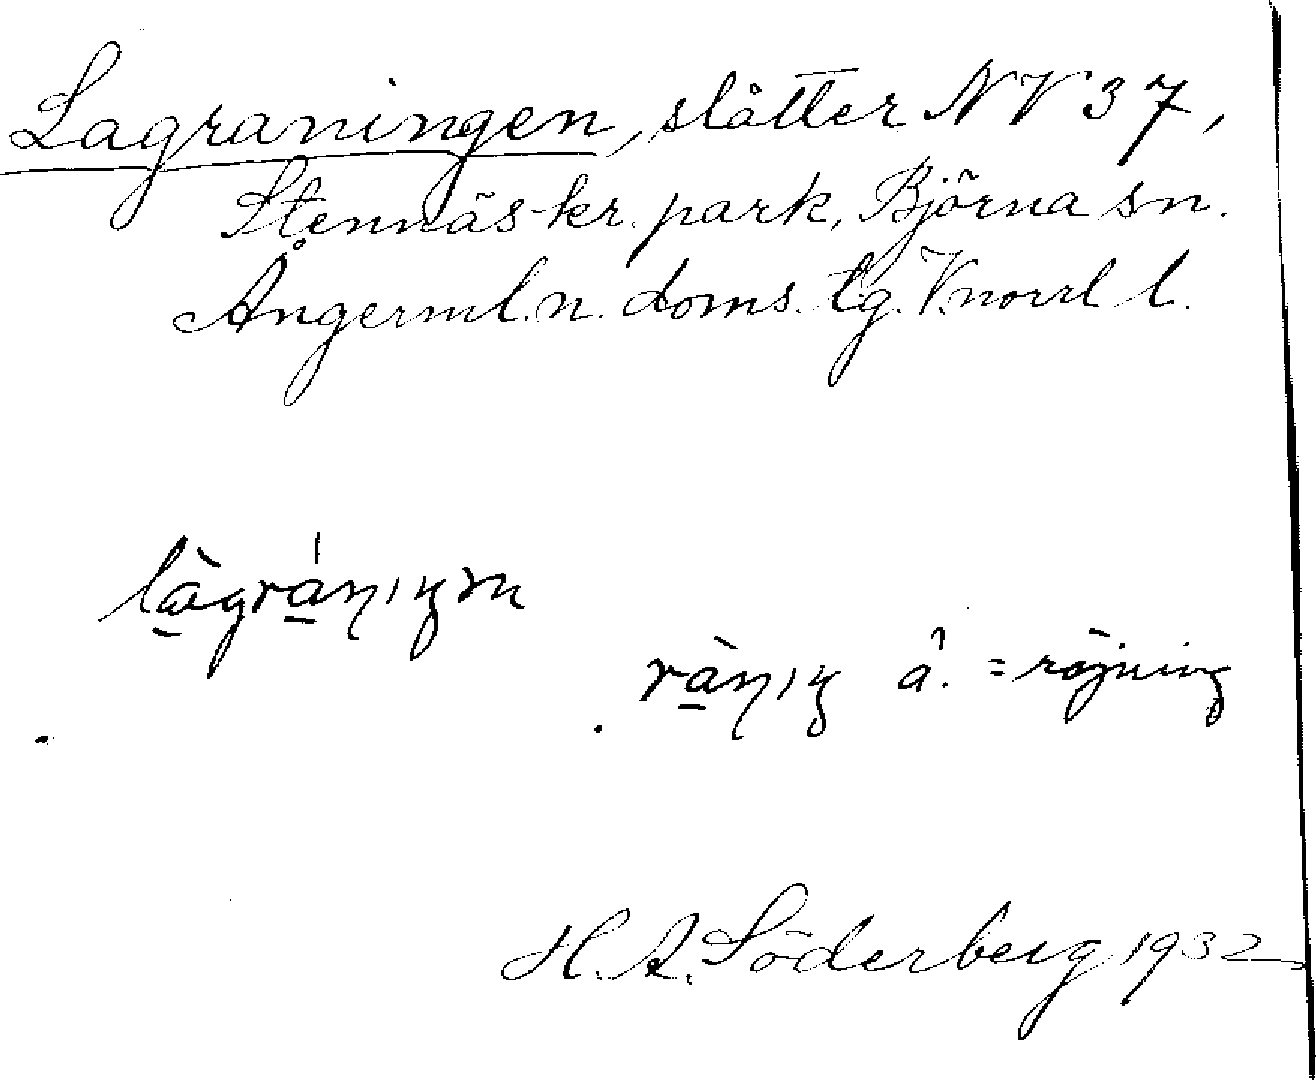 Lagraningen, slåtter NV 37,
Stennäs kr. park, Björna sn.
Ångerml. n. doms. lg. V.norrl l.
rànıŋ â. = röjning
H. A. Söderberg 1932